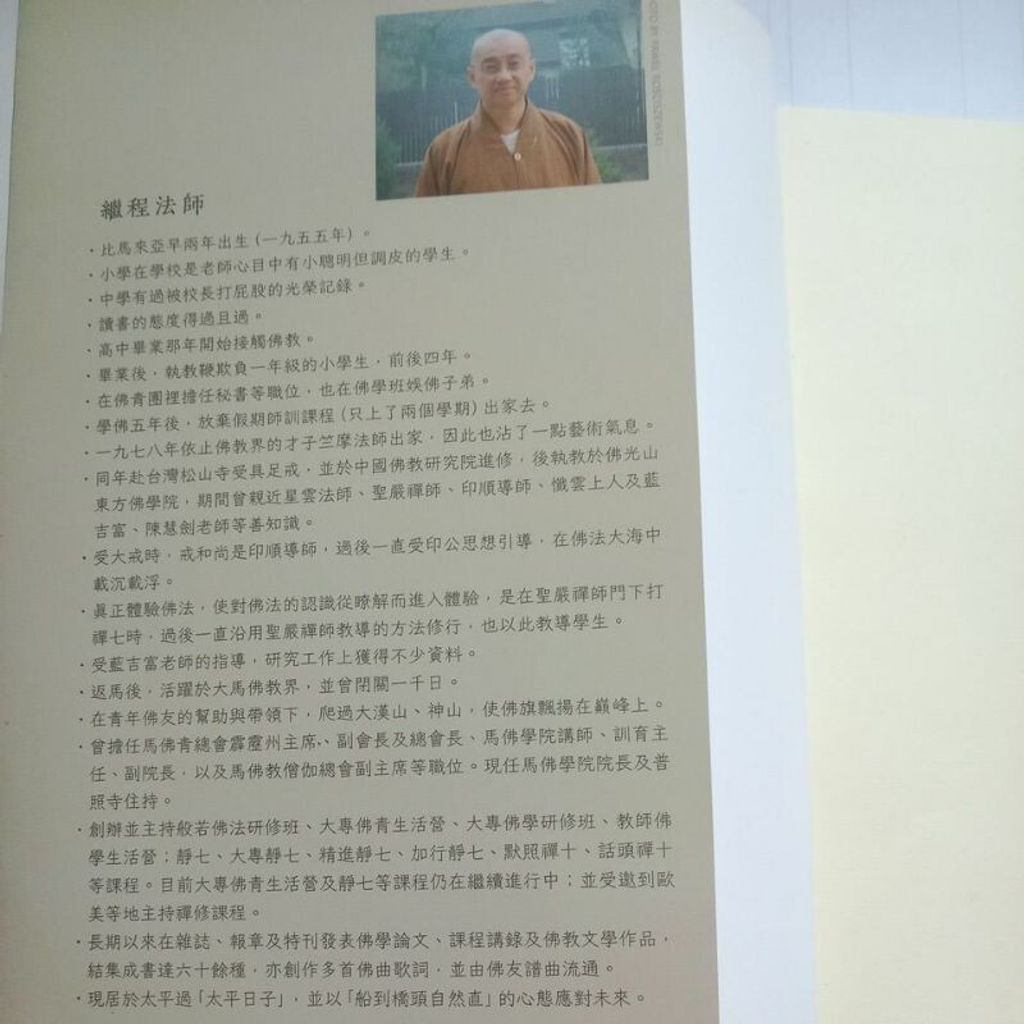 繼程法師
・比馬來亞早兩年出生(一九五五年)。
・小學在學校是老師心目中有小聰明但調皮的學生。
・中學有過被校長打屁股的光榮記錄。
・讀書的態度得過且過。
、高中畢業那年開始接觸佛教。
・畢業後，執教鞭欺負一年級的小學生，前後四年。
・在佛青團裡擔任秘書等職位，也在佛學班娛佛子弟。
・學佛五年後，放棄假期師訓課程(只上了兩個學期)出家去。
・一九七八年依止佛教界的才子竺摩法師出家，因此也沾了一點藝術氣息。
・同年赴台灣松山寺受具足戒，並於中國佛教研究院進修，後執教於佛光山
東方佛學院，期間曾親近星雲法師、聖嚴禪師、印順導師、懺雲上人及藍
吉富、陳慧劍老師等善知識。
・受大戒時，戒和尚是印順導師，過後一直受印公思想引導，在佛法大海中
載沉載浮。
・眞正體驗佛法，使對佛法的認識從瞭解而進入體驗，是在聖嚴禪師門下打
禪七時，過後一直沿用聖嚴禪師教導的方法修行，也以此教導學生。
・受藍吉富老師的指導，研究工作上獲得不少資料。
・返馬後，活躍於大馬佛教界，並曾閉關一千日。
・在青年佛友的幫助與帶領下，爬過大漢山、神山，使佛旗飄揚在巔峰上。
・曾擔任馬佛青總會霹靂州主席、副會長及總會長、馬佛學院講師、訓育主
任、副院長，以及馬佛教僧伽總會副主席等職位。現任馬佛學院院長及普
照寺住持。
・創辦並主持般若佛法研修班、大專佛青生活營、大專佛學研修班、教師佛
學生活營；靜七、大專靜七、精進靜七、加行靜七、默照禪十、話頭禪十
等課程。目前大專佛青生活營及靜七等課程仍在繼續進行中；並受邀到歐
美等地主持禪修課程。
・長期以來在雜誌、報章及特刊發表佛學論文、課程講錄及佛教文學作品，
結集成書達六十餘種，亦創作多首佛曲歌詞，並由佛友譜曲流通。
・現居於太平過「太平日子」，並以「船到橋頭自然直」的心態應對未來。